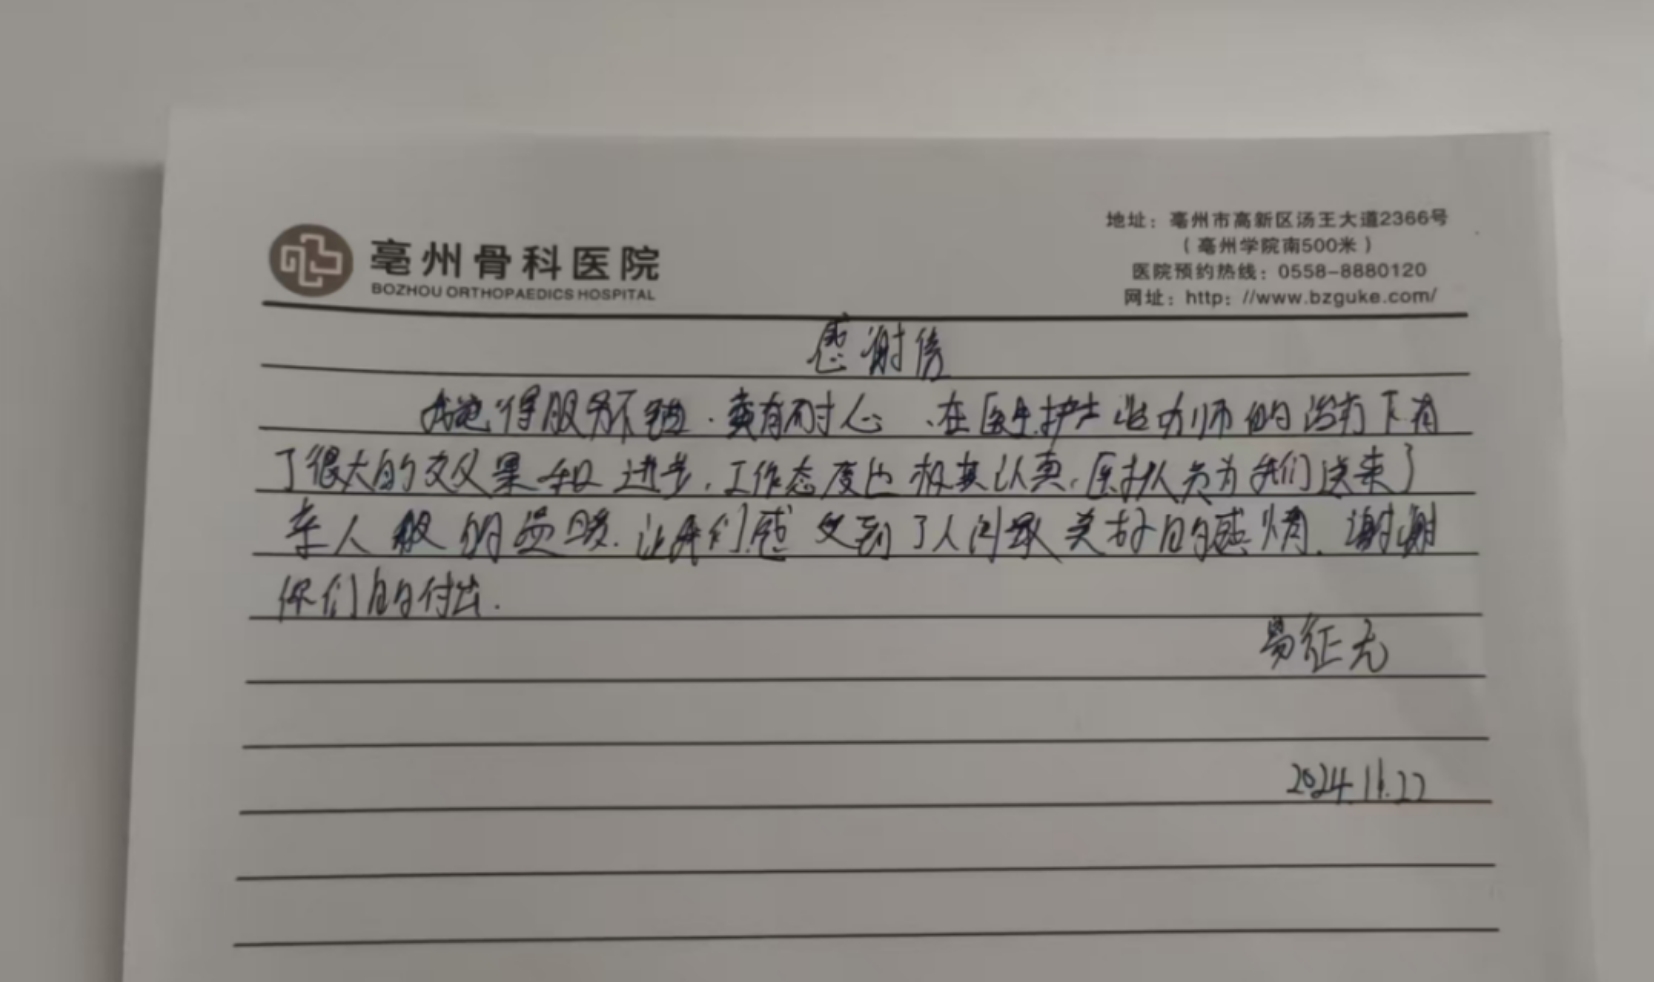 亳州骨科医院
BOZHOU ORTHOPAEDICS HOSPITAL
地址：亳州市高新区汤王大道2366号
（亳州学院南500米）
医院预约热线：0558-8880120
网址：http：//www.bzguke.com/
感谢信
我觉得服务不错.真有耐心、在医生护士 师的治疗下有
了很大的效果和进步.工作态度也极其认真.医护人员为我们送来了
亲人般的温暖.让我们感受到了人间最美好的感情.谢谢
你们的付出.
易征无
2024.11.22